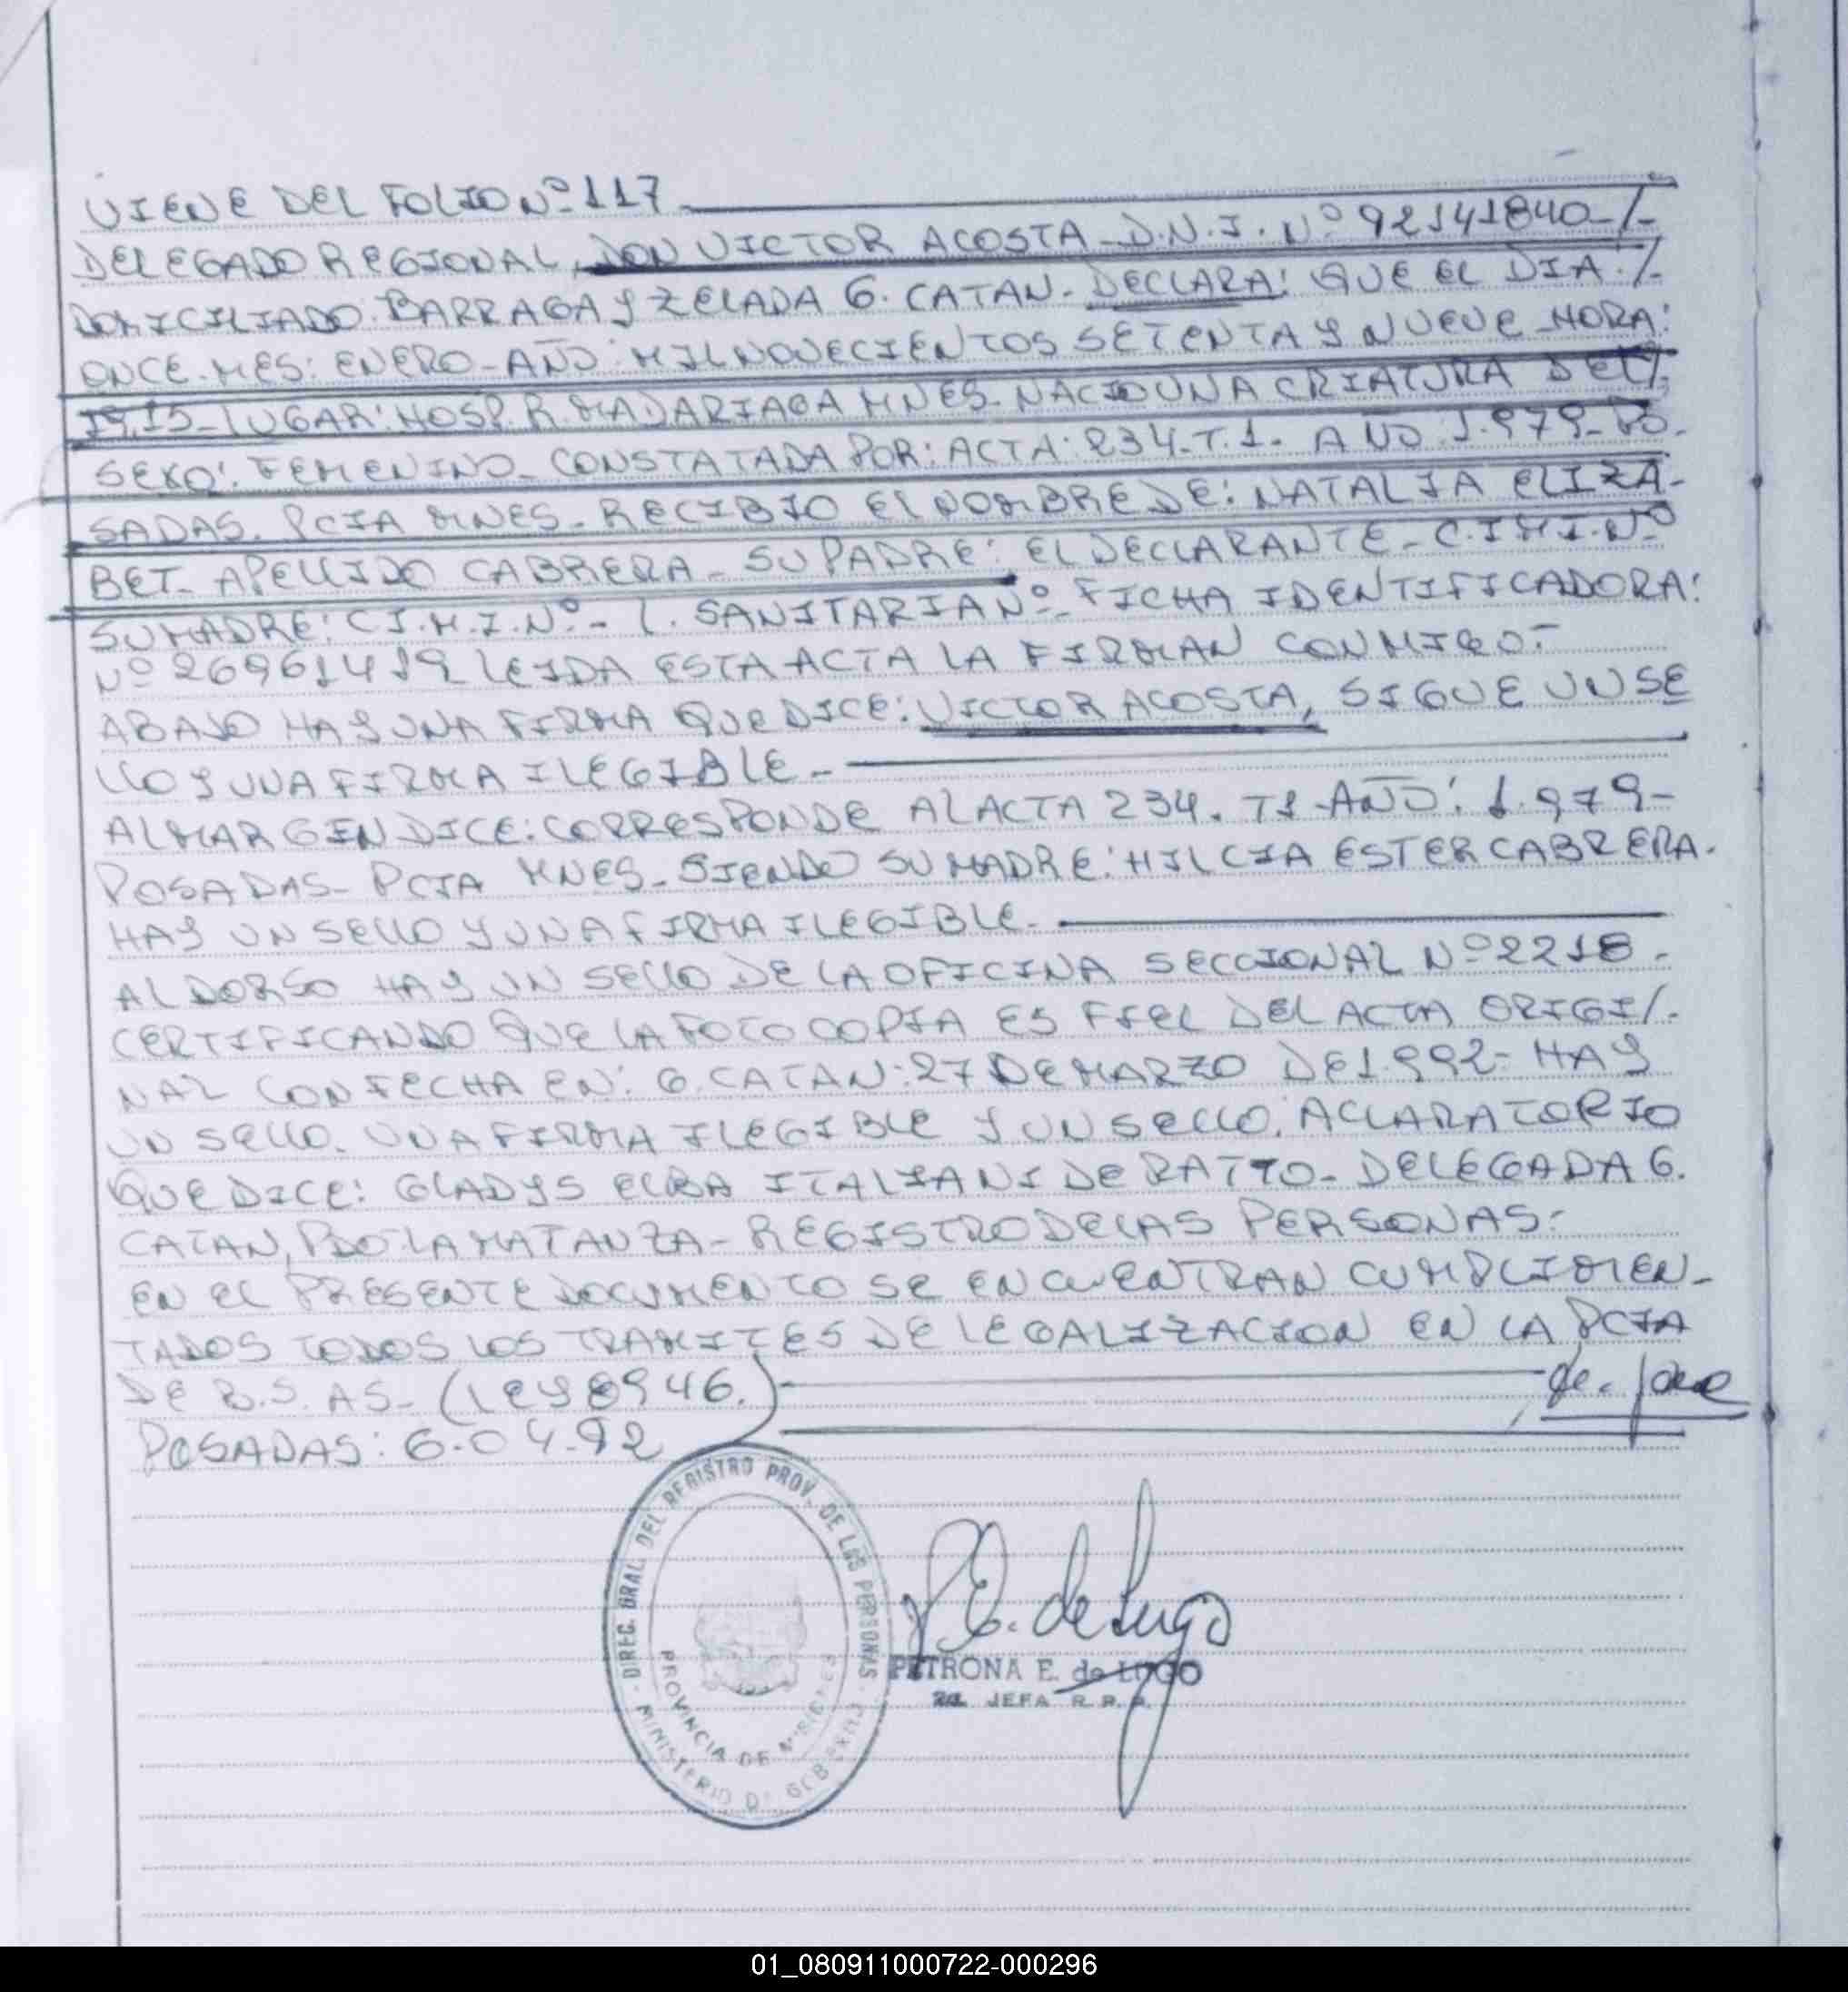 VIENE DEL FOLIO Nº 117
DELEGADO REGIONAL, DON VICTOR ACOSTA - D.N.I. Nº 92141840-/-
DOMICILIADO: BARRAGA Y ZELADA G. CATAN - DECLARA: QUE EL DIA:/-
ONCE - MES: ENERO - AÑO: MIL NOVECIENTOS SETENTA Y NUEVE - HORA:
19,15 - LUGAR: HOSP. R. MADARIAGA MNES - NACIO UNA CRIATURA DEL/-
SEXO: FEMENINO - CONSTATADA POR: ACTA: 234 - T. 1 - AÑO 1.979 - PO-
SADAS. PCIA MNES - RECIBIO EL NOMBRE DE: NATALIA ELIZA-
BET - APELLIDO CABRERA - SU PADRE: EL DECLARANTE - C.I.M.I. Nº
SU MADRE: C.I.M.I. Nº - L. SANITARIA Nº - FICHA IDENTIFICADORA:
Nº 26961419 LEIDA ESTA ACTA LA FIRMAN CONMIGO:-
ABAJO HAY UNA FIRMA QUE DICE: VICTOR ACOSTA, SIGUE UN SE
LLO Y UNA FIRMA ILEGIBLE -
AL MARGEN DICE: CORRESPONDE AL ACTA 234. T1 - AÑO: 1.979-
POSADAS - PCIA MNES - SIENDO SU MADRE: HILCIA ESTER CABRERA.
HAY UN SELLO Y UNA FIRMA ILEGIBLE.
AL DORSO HAY UN SELLO DE LA OFICINA SECCIONAL Nº 2218 -
CERTIFICANDO QUE LA FOTOCOPIA ES FIEL DEL ACTA ORIGI/-
NAL CON FECHA EN: G. CATAN: 27 DE MARZO DE 1.992 - HAY
UN SELLO. UNA FIRMA ILEGIBLE Y UN SELLO. ACLARATORIO
QUE DICE: GLADYS ELBA ITALIANI DE RATTO - DELEGADA G.
CATAN, PDO LA MATANZA - REGISTRO DE LAS PERSONAS:
EN EL PRESENTE DOCUMENTO SE ENCUENTRAN CUMPLIMEN-
TADOS TODOS LOS TRAMITES DE LEGALIZACION EN LA PCIA
DE B.S. AS - (LEY 8946.)
POSADAS: 6-04-92
DIREC. GRAL. DEL REGISTRO PROV. DE LAS PERSONAS
PROVINCIA DE MISIONES
MINISTERIO DE GOBIERNO
P.E. de Lugo
PETRONA E. de LUGO
2da. JEFA R. P. P.
01_080911000722-000296